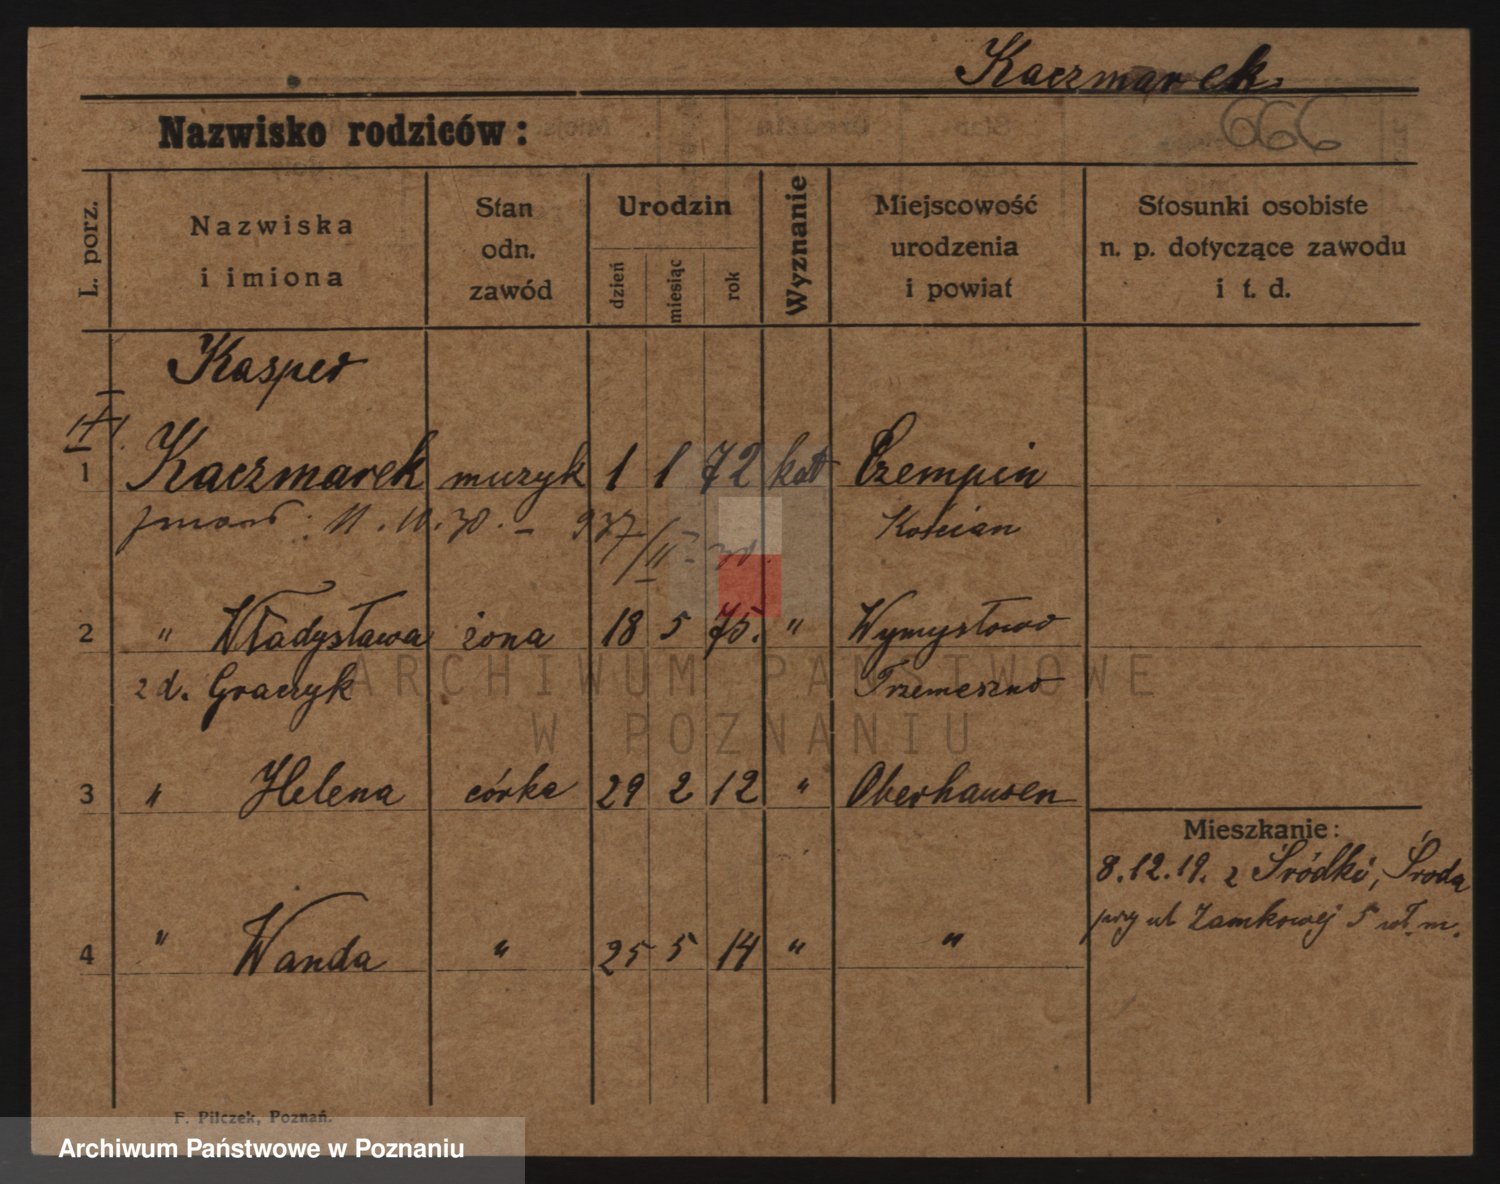 Kaczmarek
666
Nazwisko rodziców:
L. porz.
Nazwiska
i imiona
Stan
odn.
zawód
Urodzin
dzień
miesiąc
rok
Wyznanie
Miejscowość
urodzenia
i powiat
Stosunki osobiste
n. p. dotyczące zawodu
i t. d.
Kasper
1 Kaczmarek muzyk 1 1 72 kat Czempin
11.10.30. – 937/II Kościan
2 " Władysława żona 18 5 75. " Wymysłowo
z d. Graczyk Trzemeszno
3 " Helena córka 29 2 12 " Oberhausen
Mieszkanie:
8.12.19. z Śródki, Środa
przy ul Zamkowej 5
4 " Wanda " 25 5 14 " "
ARCHIWUM PAŃSTWOWE
W POZNANIU
F. Pilczek, Poznań.
Archiwum Państwowe w Poznaniu